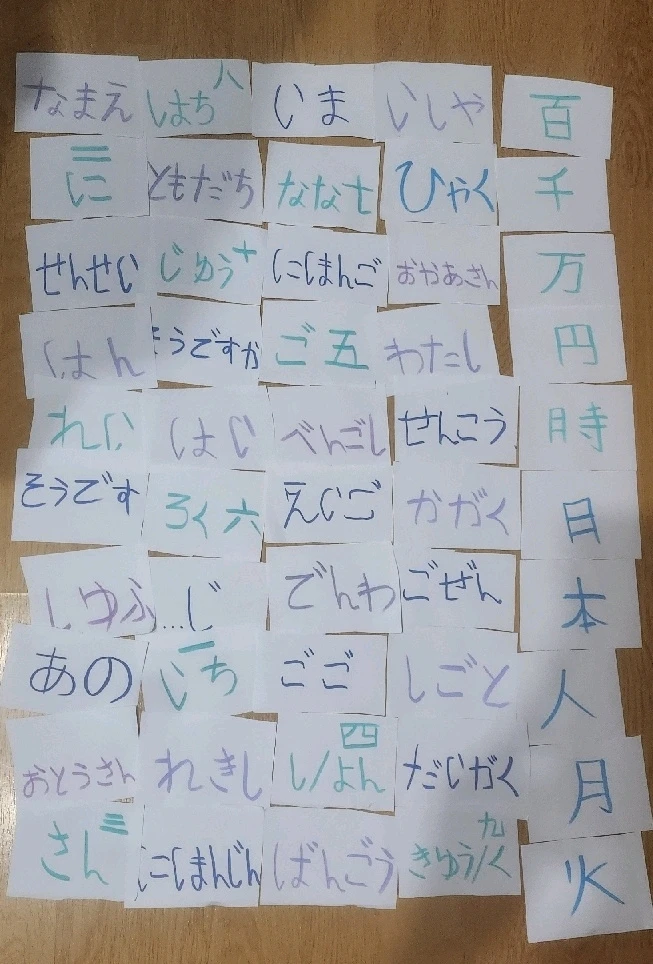 なまえ
はち 八
いま
いしゃ
百
二
に
ともだち
なな 七
ひゃく
千
せんせい
じゅう 十
にほんご
おかあさん
万
ほん
そうですか
ご 五
わたし
円
れい
はい
べんごし
せんこう
時
そうです
ろく 六
えいご
かがく
日
しゅふ
...じ
でんわ
ごぜん
本
あの
一
いち
ごご
しごと
人
おとうさん
れきし
四
し/よん
だいがく
月
さん 三
にほんじん
ばんごう
九
きゅう/く
火